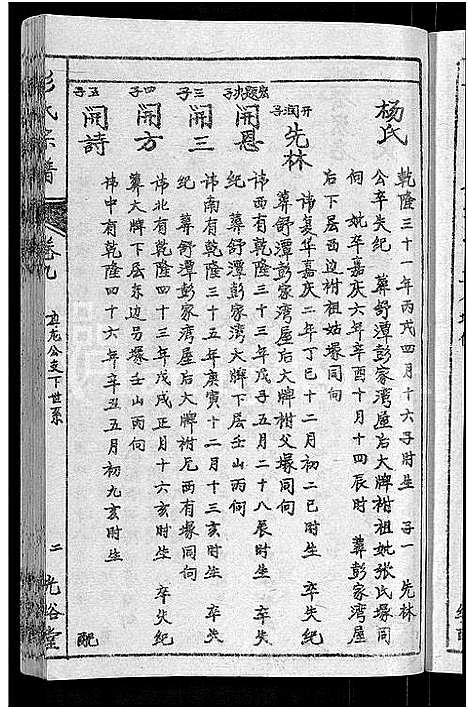 杨氏
乾隆三十一年丙戌四月十六子时生 子一 先林
公卒失纪 葬舒潭彭家湾屋后大牌袝祖妣张氏塚同
向 妣卒嘉庆六年辛酉十月十四辰时 葬彭家湾屋
后下层西边袝祖姑塚同向
开润子
先林
讳复华嘉庆二年丁巳十二月初二巳时生 卒失纪
葬舒潭彭家湾屋后大牌袝父塚同向
次子
開恩
讳西有乾隆三十三年戊子五月二十八辰时生 卒失
纪 葬舒潭彭家湾大牌下层壬山丙向
三子
開三
讳南有乾隆三十五年庚寅十二月十三亥时生 卒失
纪 葬舒潭彭家湾屋后大牌袝兄西有塚同向
四子
開方
讳北有乾隆四十三年戊戌正月十六亥时生 卒失纪
葬大牌下层东边另塚壬山丙向
五子
開詩
讳中有乾隆四十六年辛丑五月初九亥时生 配
彭氏宗譜
卷九
公支下世系
二
光裕堂